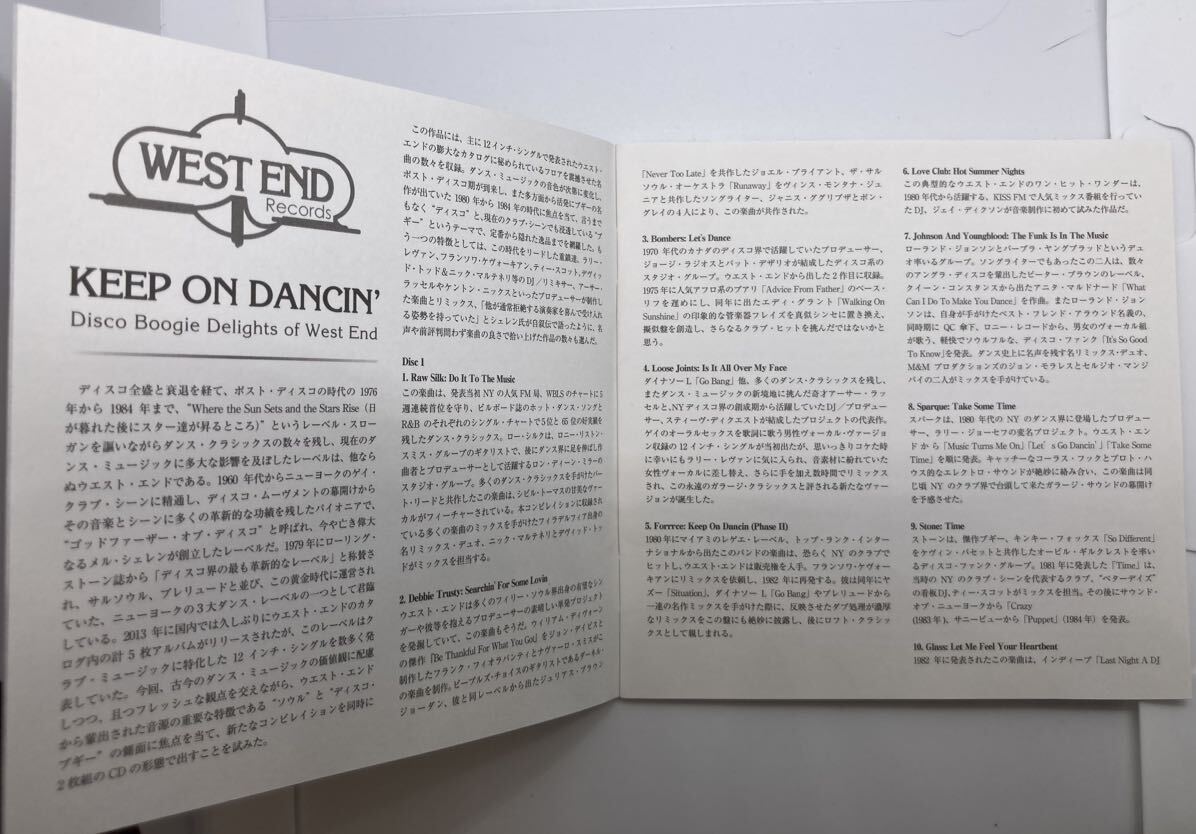 WEST END
Records
KEEP ON DANCIN'
Disco Boogie Delights of West End
ディスコ全盛と衰退を経て、ポスト・ディスコの時代の 1976
年から 1984 年まで、“Where the Sun Sets and the Stars Rise（日
が暮れた後にスター達が昇るところ）” というレーベル・スロー
ガンを謳いながらダンス・クラシックスの数々を残し、現在のダ
ンス・ミュージックに多大な影響を及ぼしたレーベルは、他なら
ぬウエスト・エンドである。1960 年代からニューヨークのゲイ・
クラブ・シーンに精通し、ディスコ・ムーヴメントの幕開けから
その音楽とシーンに多くの革新的な功績を残したパイオニアで、
“ゴッドファーザー・オブ・ディスコ” と呼ばれ、今や亡き偉大
なるメル・シェレンが創立したレーベルだ。1979 年にローリング・
ストーン誌から「ディスコ界の最も革新的なレーベル」と称賛さ
れ、サルソウル、プレリュードと並び、この黄金時代に運営され
ていた、ニューヨークの 3 大ダンス・レーベルの一つとして君臨
している。2013 年に国内では久しぶりにウエスト・エンドのカタ
ログ内の計 5 枚アルバムがリリースされたが、このレーベルはク
ラブ・ミュージックに特化した 12 インチ・シングルを数多く発
表していた。今回、古今のダンス・ミュージックの価値観に配慮
しつつ、且つフレッシュな観点を交えながら、ウエスト・エンド
から輩出された音源の重要な特徴である “ソウル” と “ディスコ・
ブギー” の側面に焦点を当て、新たなコンピレイションを同時に
2 枚組の CD の形態で出すことを試みた。
この作品には、主に 12 インチ・シングルで発表されたウエスト・
エンドの膨大なカタログに秘められているフロアを震撼させた名
曲の数々を収録。ダンス・ミュージックの音色が次第に変化し、
ポスト・ディスコ期が到来し、また多方面から活発にブギーの名
作が出ていた 1980 年から 1984 年の時代に焦点を当て、言うまで
もなく “ディスコ” と、現在のクラブ・シーンでも浸透している “ブ
ギー” というテーマで、定番から隠れた逸品までを網羅した。も
う一つの特徴としては、この時代をリードした重鎮達、ラリー・
レヴァン、フランソワ・ケヴォーキアン、ティー・スコット、デヴィッ
ド・トッド＆ニック・マルテネリ等の DJ／リミキサー、アーサー・
ラッセルやケントン・ニックスといったプロデューサーが制作し
た楽曲とリミックス、「他が通常拒絶する演奏家を喜んで受け入れ
る姿勢を持っていた」とシェレン氏が自叙伝で語ったように、名
声や前評判問わず楽曲の良さで拾い上げた作品の数々も選んだ。
Disc 1
1. Raw Silk: Do It To The Music
この楽曲は、発表当初 NY の人気 FM 局、WBLS のチャートに 5
週連続首位を守り、ビルボード誌のホット・ダンス・ソングと
R&B のそれぞれのシングル・チャートで 5 位と 65 位の好実績を
残したダンス・クラシックス。ロー・シルクは、ロニー・リストン・
スミス・グループのギタリストで、後にダンス界に足を伸ばし作
曲者とプロデューサーとして活躍するロン・ディーン・ミラーの
スタジオ・グループ。多くのダンス・クラシックスを手がけたバー
ト・リードと共作したこの楽曲は、シビル・トーマスの甘美なヴォー
カルがフィーチャーされている。本コンピレイションに収録され
ている多くの楽曲のミックスを手がけたフィラデルフィア出身の
名リミックス・デュオ、ニック・マルテネリとデヴィッド・トッ
ドがミックスを担当する。
2. Debbie Trusty: Searchin' For Some Lovin
ウエスト・エンドは多くのフィリー・ソウル界出身の有望なシン
ガーや彼等を抱えるプロデューサーの素晴しい単発プロジェクト
を発掘していて、この楽曲もそうだ。ウィリアム・ディヴォーン
の傑作「Be Thankful For What You Got」をジョン・デイビスと
制作したフランク・フィオラバンティとナヴァーロ・スミスがこ
の楽曲を制作。ピープルズ・チョイスのギタリストであるダーネル・
ジョーダン、彼と同レーベルから出たジュリアス・ブラウン
「Never Too Late」を共作したジョエル・ブライアント、ザ・サル
ソウル・オーケストラ「Runaway」をヴィンス・モンタナ・ジュ
ニアと共作したソングライター、ジャニス・グググリブザとボン・
グレイの 4 人により、この楽曲が共作された。
3. Bombers: Let's Dance
1970 年代のカナダのディスコ界で活躍していたプロデューサー、
ジョージ・ラジオスとパット・デザリオが結成したディスコ系の
スタジオ・グループ。ウエスト・エンドから出した 2 作目に収録。
1975 年に人気アフロ系のブアリ「Advice From Father」のベース・
リフを遅めにし、同年に出たエディ・グラント「Walking On
Sunshine」の印象的な管楽器フレイズを真似シンセに置き換え、
擬似盤を創造し、さらなるクラブ・ヒットを挑んだではないかと
思う。
4. Loose Joints: Is It All Over My Face
ダイナソー L「Go Bang」他、多くのダンス・クラシックスを残し、
またダンス・ミュージックの新境地に挑んだ奇才アーサー・ラッ
セルと、NY ディスコ界の創成期から活躍していた DJ／プロデュー
サー、スティーヴ・ディクエストが結成したプロジェクトの代表作。
ゲイのオーラルセックスを歌詞に歌う男性ヴォーカル・ヴァージョ
ン収録の 12 インチ・シングルが当初出たが、思いっきりコケた時
に幸いにもラリー・レヴァンに気に入られ、音素材に紛れていた
女性ヴォーカルに差し替え、さらに手を加え数時間でリミックス
され、この永遠のガラージ・クラシックスと評される新たなヴァー
ジョンが誕生した。
5. Forrrce: Keep On Dancin (Phase II)
1980 年にマイアミのレゲエ・レーベル、トップ・ランク・インター
ナショナルから出たこのバンドの楽曲は、恐らく NY のクラブで
ヒットし、ウエスト・エンドは販売権を入手。フランソワ・ケヴォー
キアンにリミックスを依頼し、1982 年に再発する。彼は同年にヤ
ズー「Situation」、ダイナソー L「Go Bang」やプレリュードから
一連の名作ミックスを手がけた際に、反映させたダブ処理が濃厚
なリミックスをこの盤にも絶妙に披露し、後にロフト・クラシッ
クスとして親しまれる。
6. Love Club: Hot Summer Nights
この典型的なウエスト・エンドのワン・ヒット・ワンダーは、
1980 年代から活躍する、KISS FM で人気ミックス番組を行ってい
た DJ、ジェイ・ディクソンが音楽制作に初めて試みた作品だ。
7. Johnson And Youngblood: The Funk Is In The Music
ローランド・ジョンソンとバーブラ・ヤングブラッドというデュ
オ率いるグループ。ソングライターでもあったこの二人は、数々
のアングラ・ディスコを輩出したピーター・ブラウンのレーベル、
クイーン・コンスタンスから出たアニタ・マルドナード「What
Can I Do To Make You Dance」を作曲。またローランド・ジョン
ソンは、自身が手がけたベスト・フレンド・アラウンド名義の、
同時期に QC 傘下、ロニー・レコードから、男女のヴォーカル組
が歌う、軽快でソウルフルな、ディスコ・ファンク「It's So Good
To Know」を発表。ダンス史上に名声を残す名リミックス・デュオ、
M&M プロダクションズのジョン・モラレスとセルジオ・マンジ
バイの二人がミックスを手がけている。
8. Sparque: Take Some Time
スパークは、1980 年代の NY のダンス界に登場したプロデュー
サー、ラリー・ジョーセフの覆名プロジェクト。ウエスト・エン
ドから「Music Turns Me On」「Let' s Go Dancin'」「Take Some
Time」を順に発表。キャッチーなコーラス・フックとプロト・ハ
ウス的なエレクトロ・サウンドが絶妙に絡み合い、この楽曲は同
じ頃 NY のクラブ界で台頭して来たガラージ・サウンドの幕開け
を予感させた。
9. Stone: Time
ストーンは、傑作ブギー、キンキー・フォックス「So Different」
をケヴィン・バセットと共作したオービル・ギルクレストを率い
るディスコ・ファンク・グループ。1981 年に発表した「Time」は、
当時の NY のクラブ・シーンを代表するクラブ、“ベターデイズ”
の看板DJ、ティー・スコットがミックスを担当。その後にサウンド・
オブ・ニューヨークから「Crazy
(1983 年)、サニービューから「Puppet」（1984 年）を発表。
10. Glass: Let Me Feel Your Heartbeat
1982 年に発表されたこの楽曲は、インディープ「Last Night A DJ